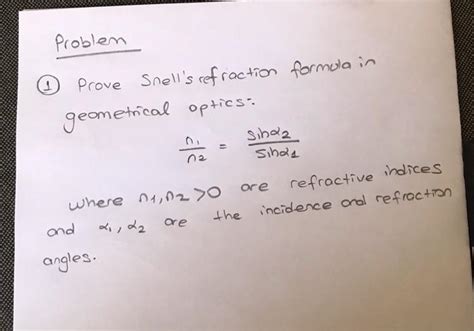 Problem
① Prove Snell's refraction formula in
geometrical optics:
n₁/n₂ = sinα₂/sinα₁
where n₁, n₂ > 0 are refractive indices
and α₁, α₂ are the incidence and refraction
angles.